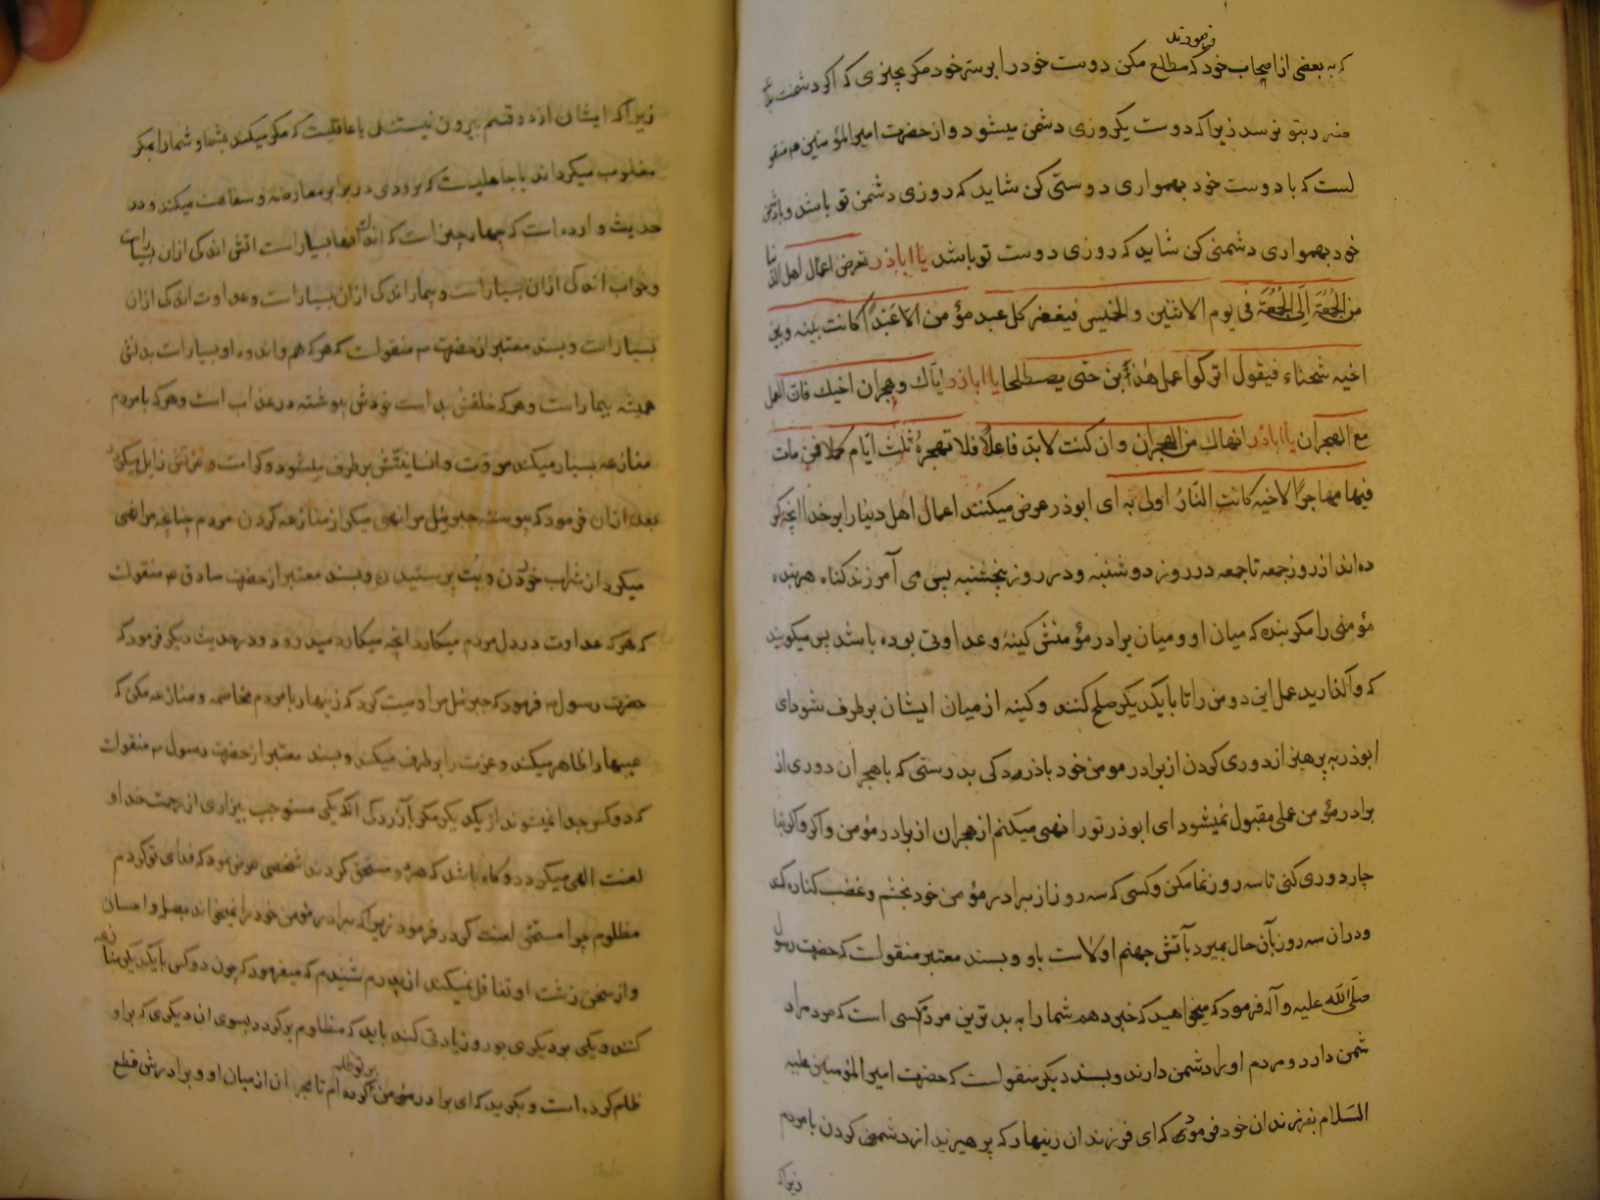 فرمودند
که به بعضی از اصحاب خود که مطلع مکن دوست خود را بر سر خود مکر بچیزی که اکر دشمنت
ضرر بتو نرسد زیرا که دوست یکروزی دشمن میشود و از حضرت امیر المؤمنین هم منقو
لست که با دوست خود بهمواری دوستی کن شاید که روزی دشمن تو باشد و با دشمن
خود بهمواری دشمنی کن شاید که روزی دوست تو باشد یا اباذر تعرض اعمال اهل الدنیا
من الجُمُعَة اِلَی الجُمُعَة فی یوم الاثنین والخمیس فیغفر کل عبد مؤمن الا عَبْداً کانت بینه و بین
اخیه شحناء فیقول اترکوا عمل هٰذین حتی یصطلحا یا اباذر ایّاک و هجران اخیک فان العمل
مع الهجران یا اباذر انهاک من الهجران وان کنت لابد فاعلاً فلا تهجرهُ ثلث ایّام کملا فمن مات
فیها مهاجراً لاخیه کانت النّارُ اولی به ای ابوذر عرض میکنند اعمال اهل دنیا را بر خدا انچه کر
ده اند از روز جمعه تا جمعه در روز دوشنبه و در روز پنجشنبه پس می آمرزند کناه هر بنده
مؤمنی را مکر بنده که میان او و میان برادر مؤمنش کینهٔ و عداوتی بوده باشد پس میکویند
که واکذارید عمل این دو من را تا با یکدیکر صلح کنند و کینه از میان ایشان برطرف شود ای
ابوذر بپرهیز از دوری کردن از برادر مومن خود بدرستی که با هجران و دوری از
برادر مؤمن عملی مقبول نمیشود ای ابوذر تو را نهی میکنم از هجران از برادر مؤمن و اکر و اکر بنا
چار دوری کنی تا سه روز تمام مکن و کسی که سه روز از برادر مؤمن خود بخشم و غضب کناره کند
و در ان سه روز بآن حال بمیرد بآتش جهنم اولاست باو و بسند معتبر منقولست که حضرت رسول
صلّی الله علیه و آله فرمود که میخواهید که خبر دهم شما را به بدترین مردم کسی است که مردم را د
شمن دارد و مردم او را دشمن دارند و بسند دیکر منقولست که حضرت امیر المؤمنین علیه
السّلام بفرزندان خود فرمود که ای فرزندان زینهار که بپرهیزید از دشمنی کردن با مردم
زیرا که
زیرا که ایشان از دو قسم بیرون نیستند یا عاقلیست که مکر میکند بشما و شما را بمکر
مغلوب میکرداند یا جاهلیست که بزودی در برابر معارضه و سفاهت میکند و در
حدیث وارده است که چهار چیز است که اندک انها بسیار است اتش اندکی از ان بسیار است
و خواب اندکی از ان بسیار است و بیمار اندکی از ان بسیار است و عداوت اندکی از ان
بسیار است و بسند معتبر از حضرت منقولست که هر که هم و اندوه او بسیار است بدنش
همیشه بیمار است و هر که خلقش بد است نفسش پیوسته در عذاب است و هر که با مردم
منازعه بسیار میکند مروت و انسانیتش برطرف میشود و کرامت و عزتش زایل میکرد
بعد از ان فرمود که پیوسته جبرئیل مرا نهی میکرد از منازعه کردن مردم چنانچه مرا نهی
میکرد از شراب خوردن و بُت پرستیدن و بسند معتبر از حضرت صادق م منقولست
که هر که عداوت در دل مردم میکارد انچه میکارد میدرود و در حدیث دیکر فرمود که
حضرت رسول فرمود که جبرئیل مرا وصیت کرد که زینهار با مردم مخاصمه و منازعه مکن که
عیبها را ظاهر میکند و عزت را برطرف میکند و بسند معتبر از حضرت رسول م منقولست
که دو کس جدا نمیشوند از یکدیکر مکر آزردکی انکه یکی مستوجب بیزاری از رحمت خدا و
لعنت الهی میکردد و کاه باشد که هر دو مستحق کردند شخصی عرض نمود که فدای تو کردم
مظلوم چرا مستحق لعنت کردد فرمود زیرا که برادر مؤمن خود را نمیخواند بصلح و احسان
و از سخن زشت او تغافل نمیکند از پدرم شنیدم که میفرمود که چون دو کس با یکدیکر منازعه
کنند و یکی بر دیکری جور و زیادتی کند باید که مظلوم برکردد بسوی ان دیکری که بر او
بر تو ظلم
ظلم کرده است و بکوید که ای برادر من کرده ام تا هجران از میان او و برادرش قطع